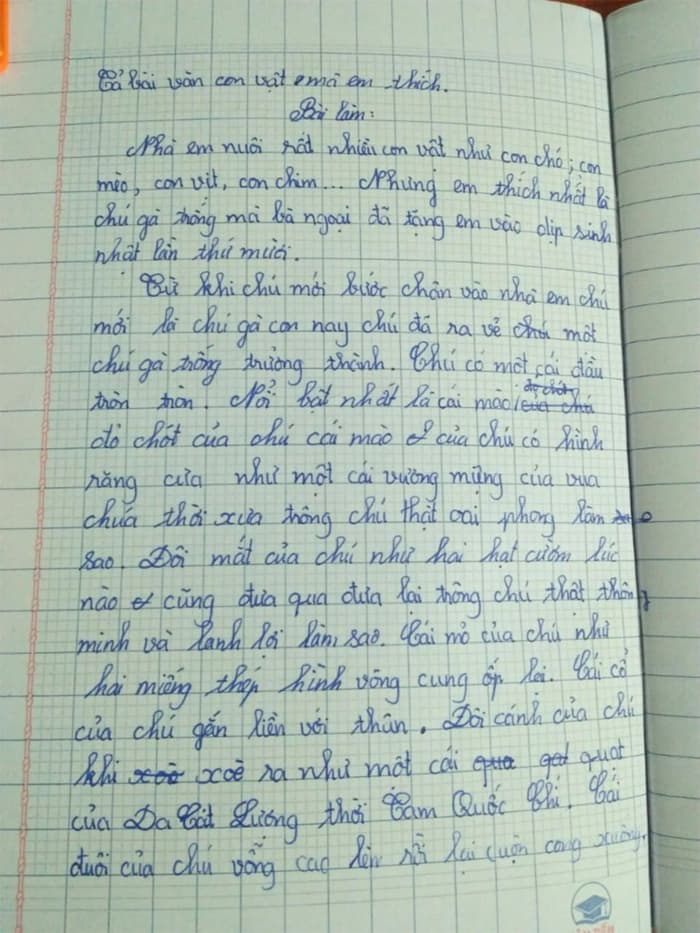 Tả bài văn con vật mà em thích.
Bài làm:
Nhà em nuôi rất nhiều con vật như con chó; con
mèo, con vịt, con chim... Nhưng em thích nhất là
chú gà trống mà bà ngoại đã tặng em vào dịp sinh
nhật lần thứ mười.
Từ khi chú mới bước chân vào nhà em chú
mới là chú gà con nay chú đã ra vẻ một
chú gà trống trưởng thành. Chú có một cái đầu
tròn tròn. Nổi bật nhất là cái mào
đỏ chót của chú cái mào của chú có hình
răng cưa như một cái vương miệng của vua
chúa thời xưa trông chú thật oai phong làm
sao. Đôi mắt của chú như hai hạt cườm lúc
nào cũng đưa qua đưa lại trông chú thật thông
minh và lanh lợi làm sao. Cái mỏ của chú như
hai miếng thép hình vòng cung ốp lại. Cái cổ
của chú gắn liền với thân. Đôi cánh của chú
khi xoè ra như một cái quạt
của Da Cát Lượng thời Tam Quốc Chí. Cái
đuôi của chú vổng cao lên rồi lại cuộn cong xuống.